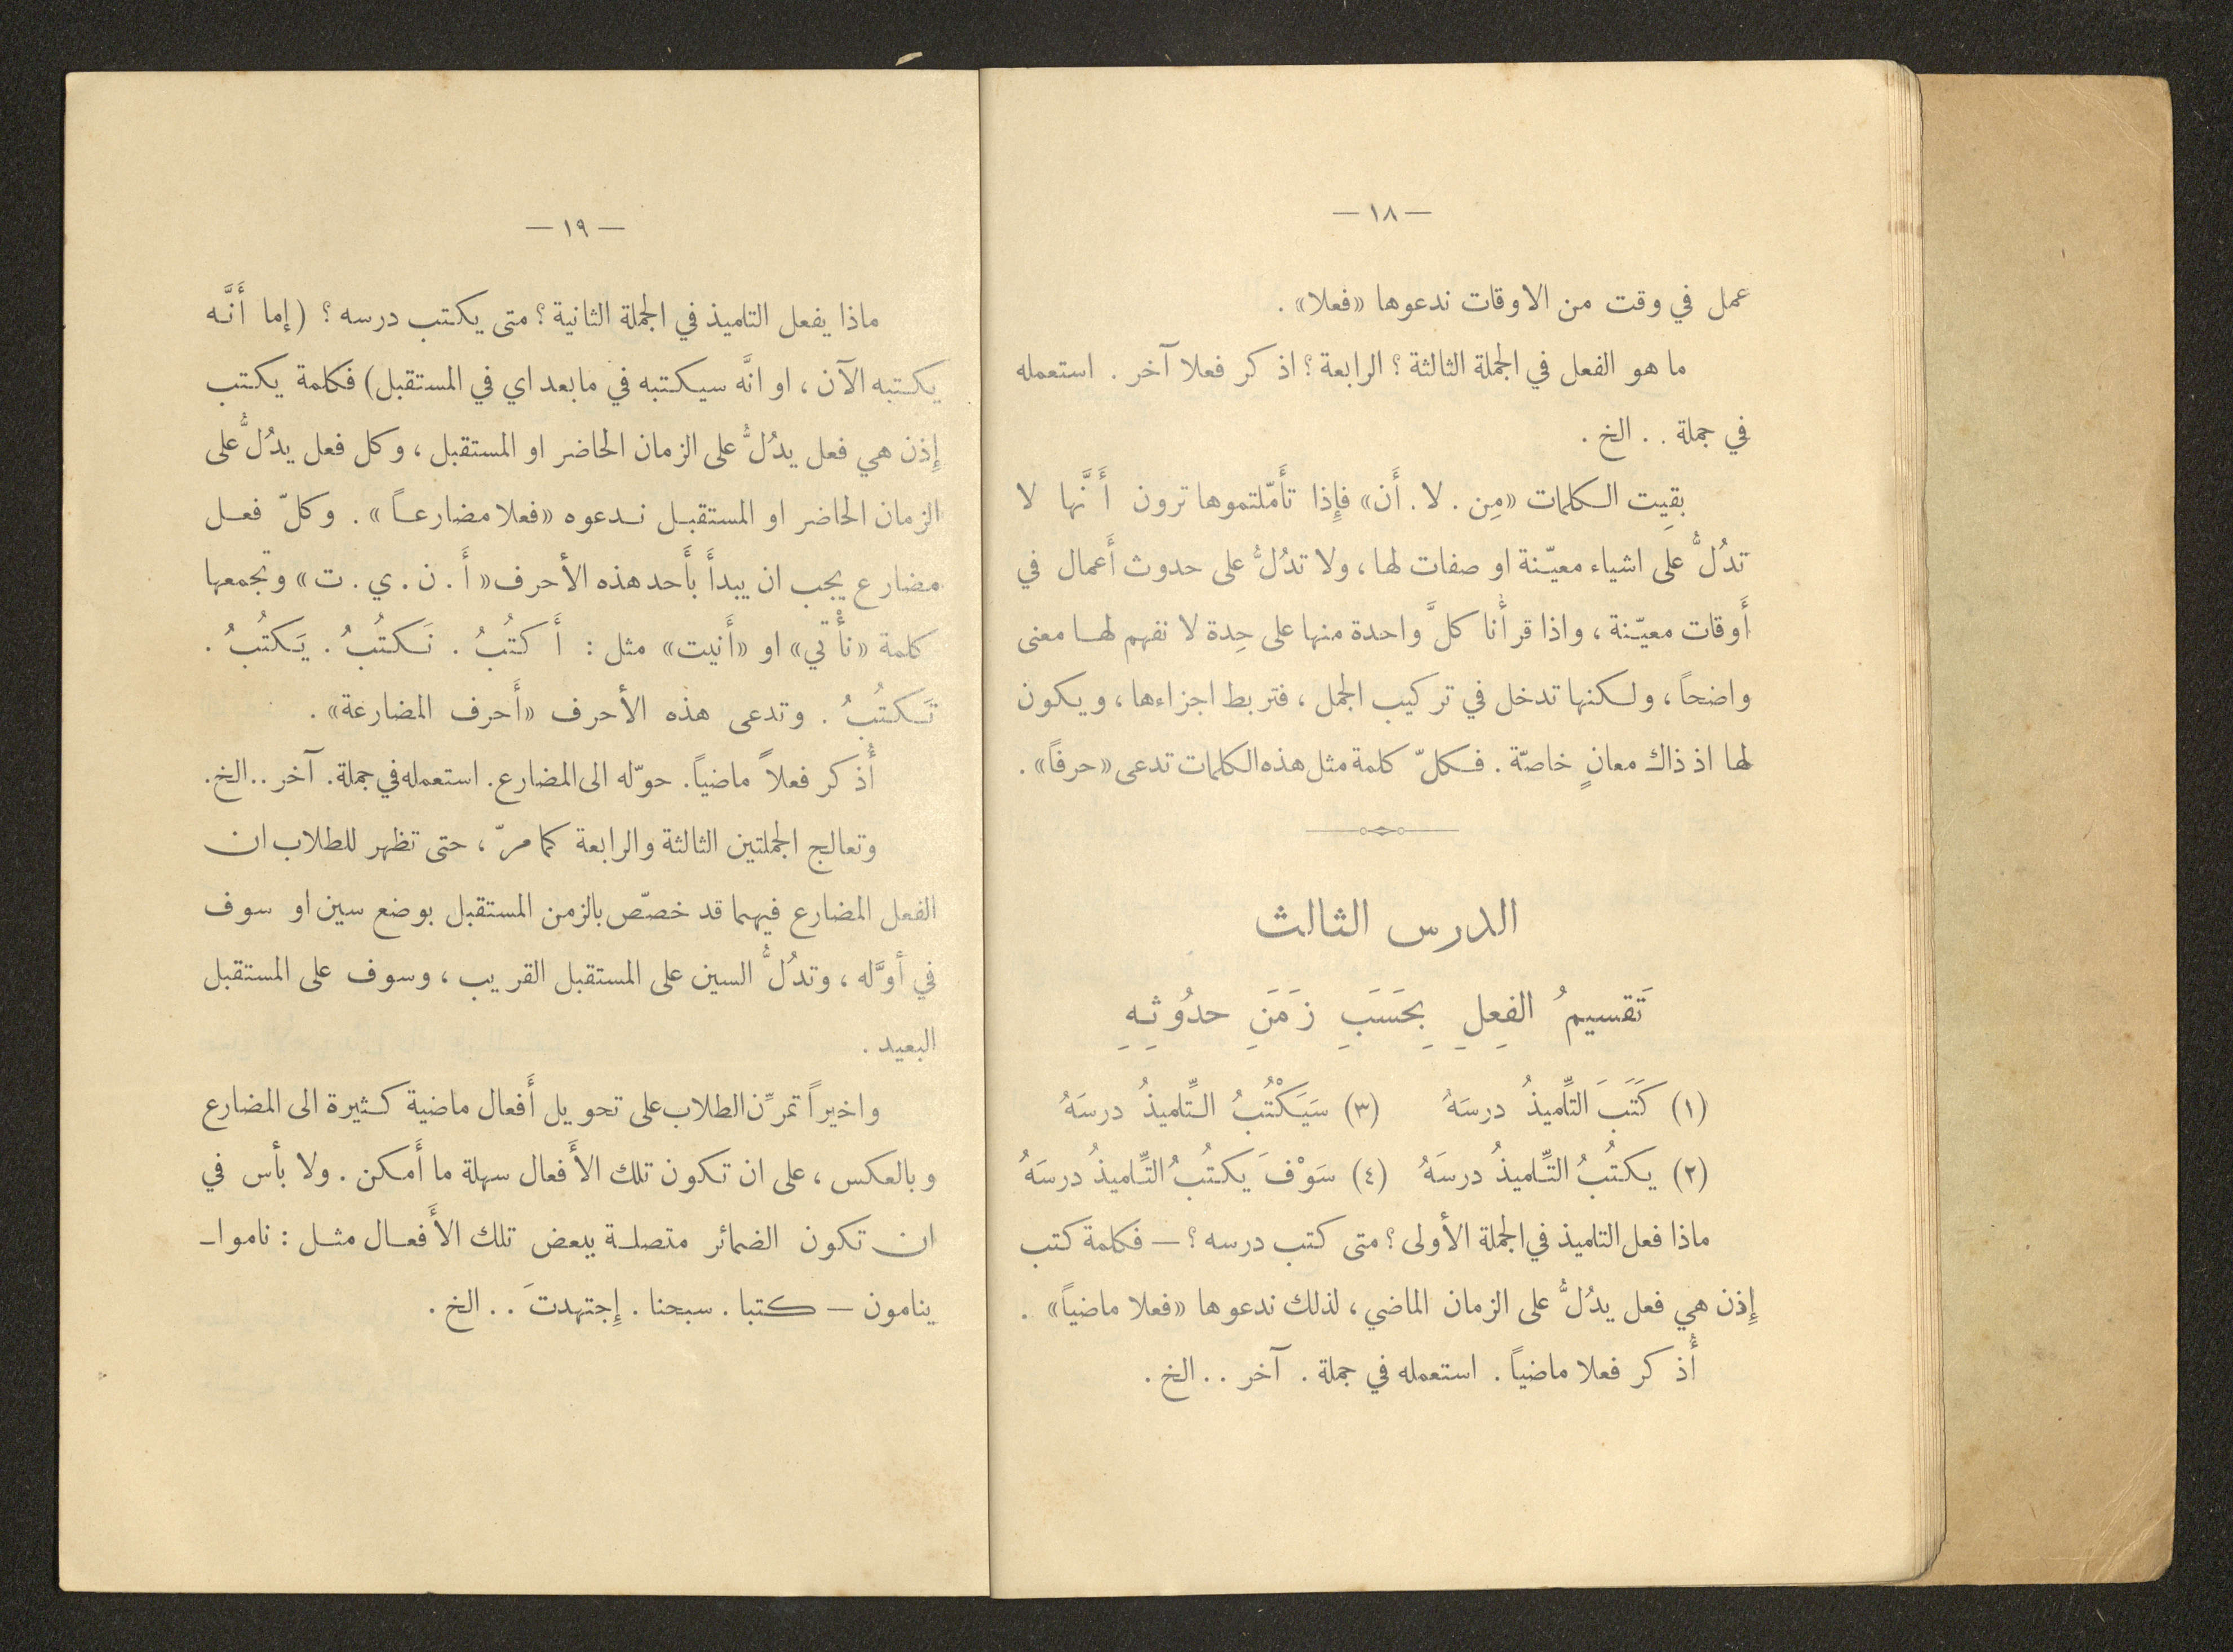 — ١٨ —
عمل في وقت من الاوقات ندعوها «فعلا» .
ما هو الفعل في الجملة الثالثة ؟ الرابعة ؟ اذكر فعلا آخر . استعمله
في جملة . . الخ .
بقِيت الكلمات «مِن . لا . أَن» فإِذا تأَمّلتموها ترون أَنَّها لا
تدُلُّ على اشياء معيّنة او صفات لها ، ولا تدُلُّ على حدوث أَعمال في
أَوقات معيّنة ، واذا قرأْنا كلَّ واحدة منها على حِدة لا نفهم لها معنى
واضحاً ، ولكنها تدخل في تركيب الجمل ، فتربط اجزاءها ، ويكون
لها اذ ذاك معانٍ خاصّة . فكلّ كلمة مثل هذه الكلمات تدعى «حرفاً» .
الدرس الثالث
تَقسيمُ الفِعلِ بِحَسَبِ زَمَنِ حدُوثِهِ
(١) كَتَبَ التِّلميذُ درسَهُ (٣) سَيَكْتُبُ التِّلميذُ درسَهُ
(٢) يكتُبُ التِّلميذُ درسَهُ (٤) سَوْفَ يكتُبُ التِّلميذُ درسَهُ
ماذا فعل التلميذ في الجملة الأولى ؟ متى كتب درسه ؟ — فكلمة كتب
إِذن هي فعل يدُلُّ على الزمان الماضي ، لذلك ندعوها «فعلا ماضياً» .
أُذكر فعلا ماضياً . استعمله في جملة . آخر . . الخ .
— ١٩ —
ماذا يفعل التلميذ في الجملة الثانية ؟ متى يكتب درسه ؟ (إما أَنَّه
يكتبه الآن ، او انَّه سيكتبه في ما بعد اي في المستقبل) فكلمة يكتب
إِذن هي فعل يدُلُّ على الزمان الحاضر او المستقبل ، وكل فعل يدُلُّ على
الزمان الحاضر او المستقبل ندعوه «فعلا مضارعاً» . وكلّ فعل
مضارع يجب ان يبدأَ بأَحد هذه الأحرف «أَ . ن . ي . ت» وتجمعها
كلمة «نأْتي» او «أَنيت» مثل : أَكتُبُ . نَكتُبُ . يَكتُبُ .
تَكتُبُ . وتدعى هذه الأحرف «أَحرف المضارعة» .
أُذكر فعلاً ماضياً . حوّله الى المضارع . استعمله في جملة . آخر . . الخ .
وتعالج الجملتين الثالثة والرابعة كما مرّ ، حتى تظهر للطلاب ان
الفعل المضارع فيهما قد خصّص بالزمن المستقبل بوضع سين او سوف
في أوَّله ، وتدُلُّ السين على المستقبل القريب ، وسوف على المستقبل
البعيد .
واخيراً تمرِّن الطلاب على تحويل أَفعال ماضية كثيرة الى المضارع
وبالعكس ، على ان تكون تلك الأَفعال سهلة ما أَمكن . ولا بأس في
ان تكون الضمائر متصلة ببعض تلك الأَفعال مثل : ناموا —
ينامون — كتبا . سبحنا . إِجتهدتَ . . الخ .